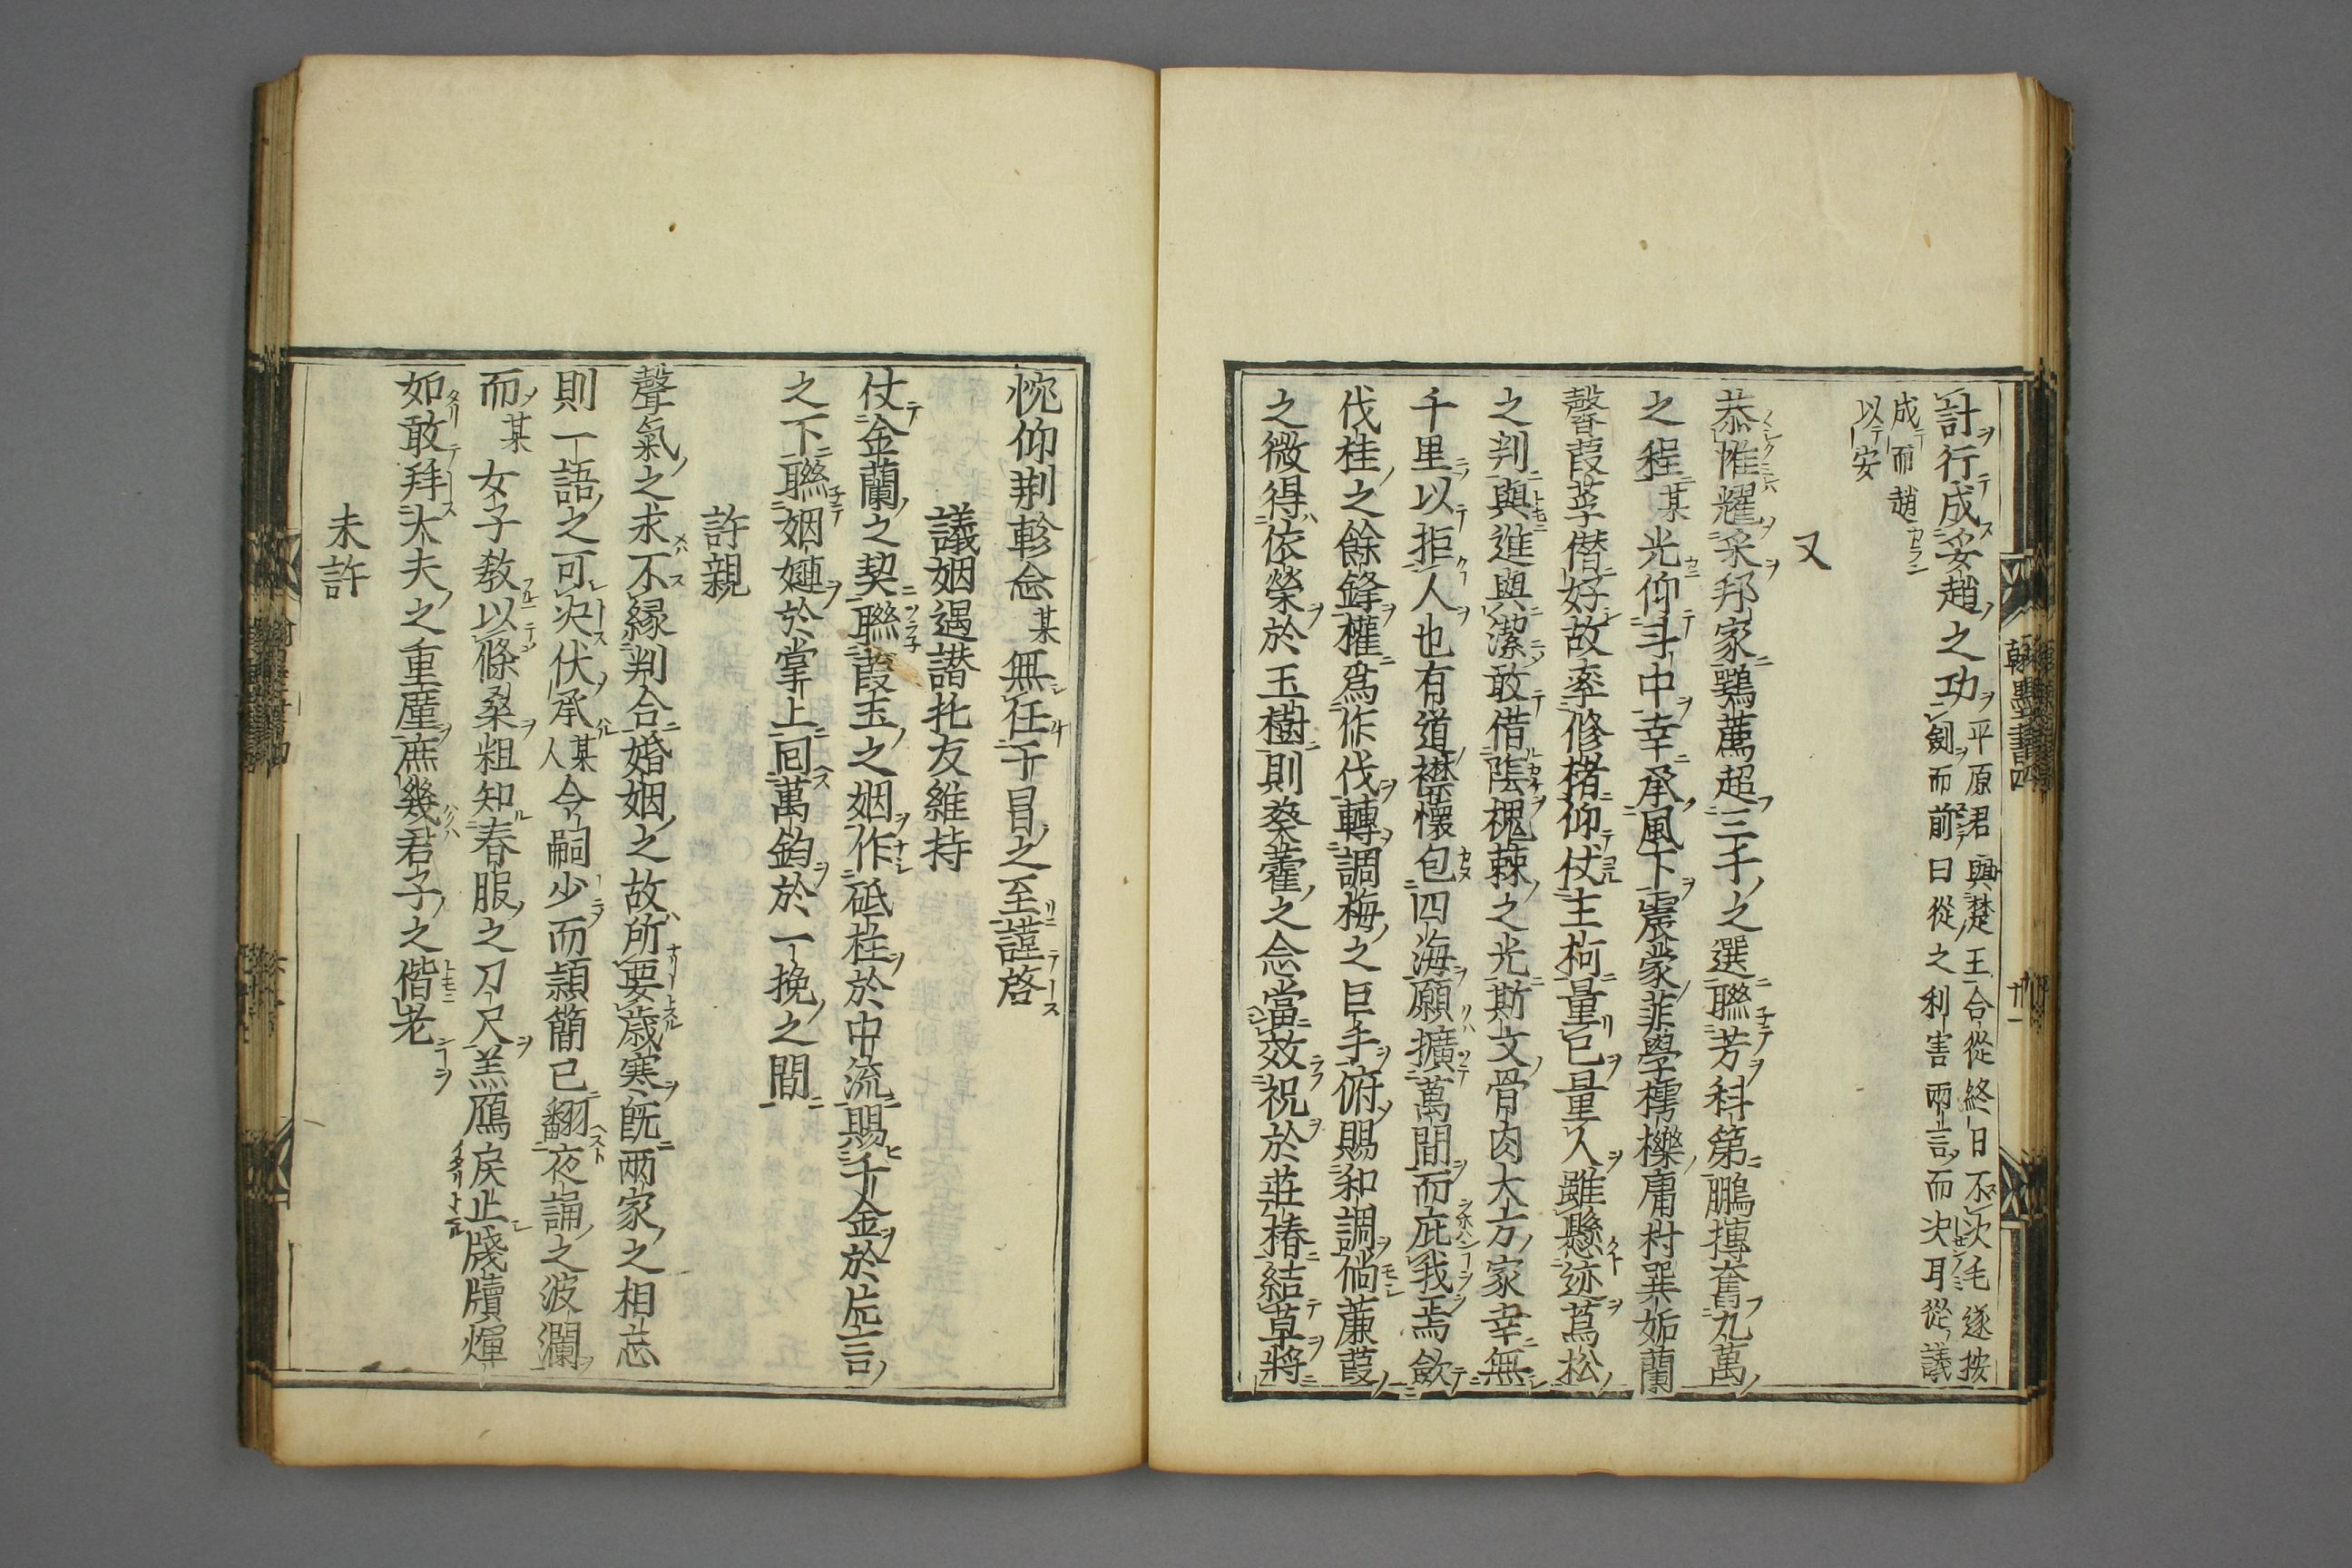 計行成妥趙之功平原君與楚王合從終日不决毛遂按
劍而前曰從之利害兩言而决耳從議
成而趙
以安
又
恭惟耀采邦家鶚薦超三千之選聯芳科第鵬摶奮九萬
之程某光仰斗中幸承風下震蒙菲學樗櫟庸材巽姤蘭
馨葭莩僭好故率修楮仰仗主柯量已量人雖懸迹蔦松
之判與進與潔敢借陰槐蕀之光斯文骨肉大方家幸無
千里以拒人也有道襟懷包四海願擴萬間而庇我焉歛
伐桂之餘鋒權爲作伐轉調梅之巨手俯賜和調倘蒹葭
之微得依榮於玉樹則葵藿之念當效祝於莊椿結草將
惋仰荆軫念某無任于目之至謹啓
議姻遇譖扥友維持
仗金蘭之契聯葭玉之姻作砥柱於中流賜千金於片言
之下聯姻嫤於掌上囘萬鈞於一挽之間
許親
聲氣之求不縁判合婚姻之故所要歳寒旣兩家之相忘
則一語之可决伏承某人今嗣少而頴簡已翻夜誦之波瀾
而某女子教以條桑粗知春服之刀尺羔鴈戾止牋牘煇
如敢拜大夫之重䧹庶幾君子之偕老
未許